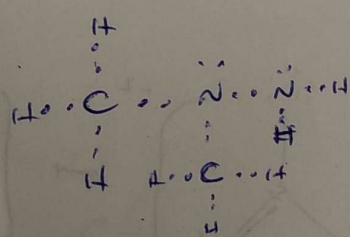 H
H C N N H
H H
H C H
H